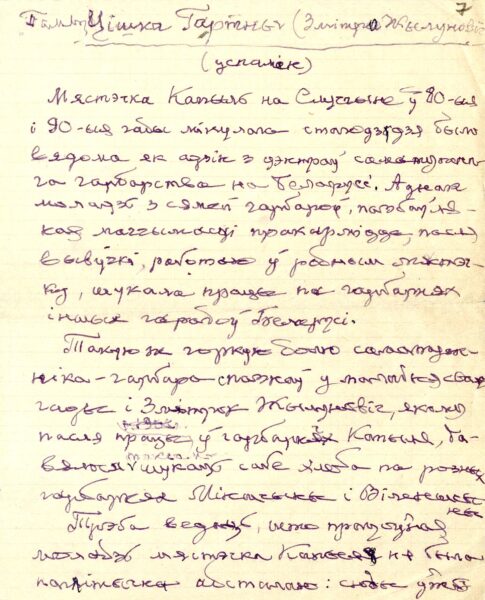 7
Цішка Гартны (Зміцра Жылуновіч
(успамін)
Мястэчка Капыль на Случчыне ў 80-ыя
і 90-ыя гады мінулага стагоддзя было
вядома як адзін з цэнтраў саматужна-
га гарбарства на Беларусі. Аднак
моладзь з сямей гарбароў, пазбаўле-
ная магчымасці пракарміцца, пасля
вывучкі, работаю ў родным мястэч-
ку, шукала працы па гарбарнях
іншых гарадоў Беларусі.
Такую ж горкую долю саматуж-
ніка-гарбара спазнаў у маладыя свае
гады і Зміцер Жылуновіч, якому
пасля працы ў гарбарнях Капыля, да-
вялося шукаць сабе хлеба па розных
гарбарнях Міншчыны і Віленшчы-
ны
Трэба ведаць, што працоўная
моладзь мястэчка Капыля не была
палітычна адсталаю: сюды ўжо